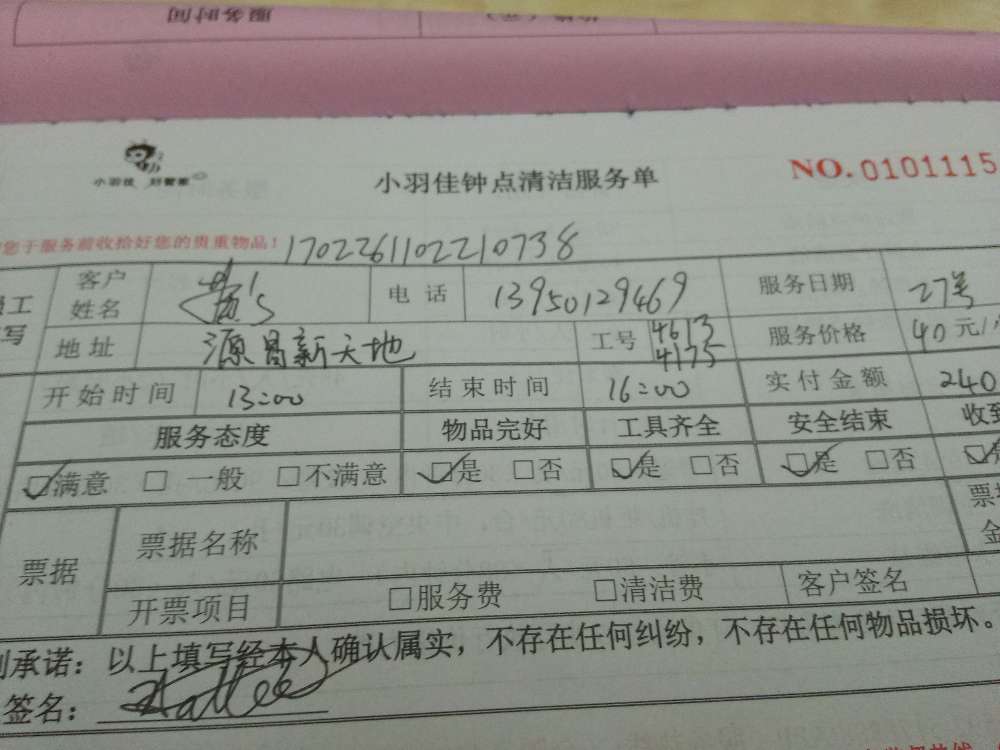 服务时间
小羽佳 好管家
小羽佳钟点清洁服务单
NO.0101115
您于服务前收拾好您的贵重物品！ 1702261102210738
客户姓名 电话 13950129469 服务日期 27号
地址 源昌新天地 工号 4613 4175 服务价格 40元/
开始时间 13:00 结束时间 16:00 实付金额 240
服务态度 物品完好 工具齐全 安全结束 收到
☑满意 □ 一般 □不满意 ☑是 □否 ☑是 □否 ☑是 □否
票据 票据名称
开票项目 □服务费 □清洁费 客户签名
承诺：以上填写经本人确认属实，不存在任何纠纷，不存在任何物品损坏。
签名：